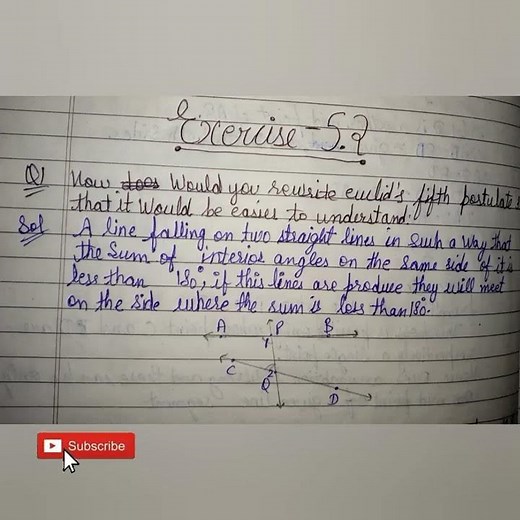 Exercise-5.2
Q1 How does Would you rewrite euclid's fifth postulate so
that it would be easier to understand.
Sol A line falling on two straight lines in such a way that
the Sum of interior angles on the same side of it is
less than 180°, if this lines are produce they will meet
on the side where the sum is less than 180.
A P B
1
C 2
Q
D
Subscribe